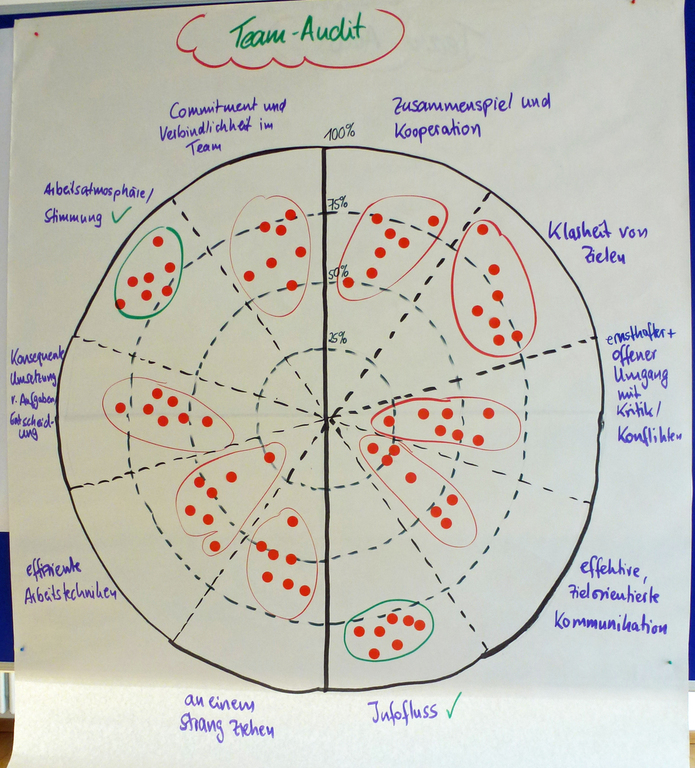 Team-Audit
Commitment und
Verbindlichkeit im
Team
Zusammenspiel und
Kooperation
100%
75%
50%
25%
Arbeitsatmosphäre/
Stimmung ✓
Klarheit von
Zielen
Konsequente
Umsetzung
v. Aufgaben/
Entscheid-
ung
ernsthafter +
offener
Umgang
mit
Kritik/
Konflikten
effiziente
Arbeitstechniken
effektive,
zielorientierte
Kommunikation
an einem
Strang ziehen
Infofluss ✓